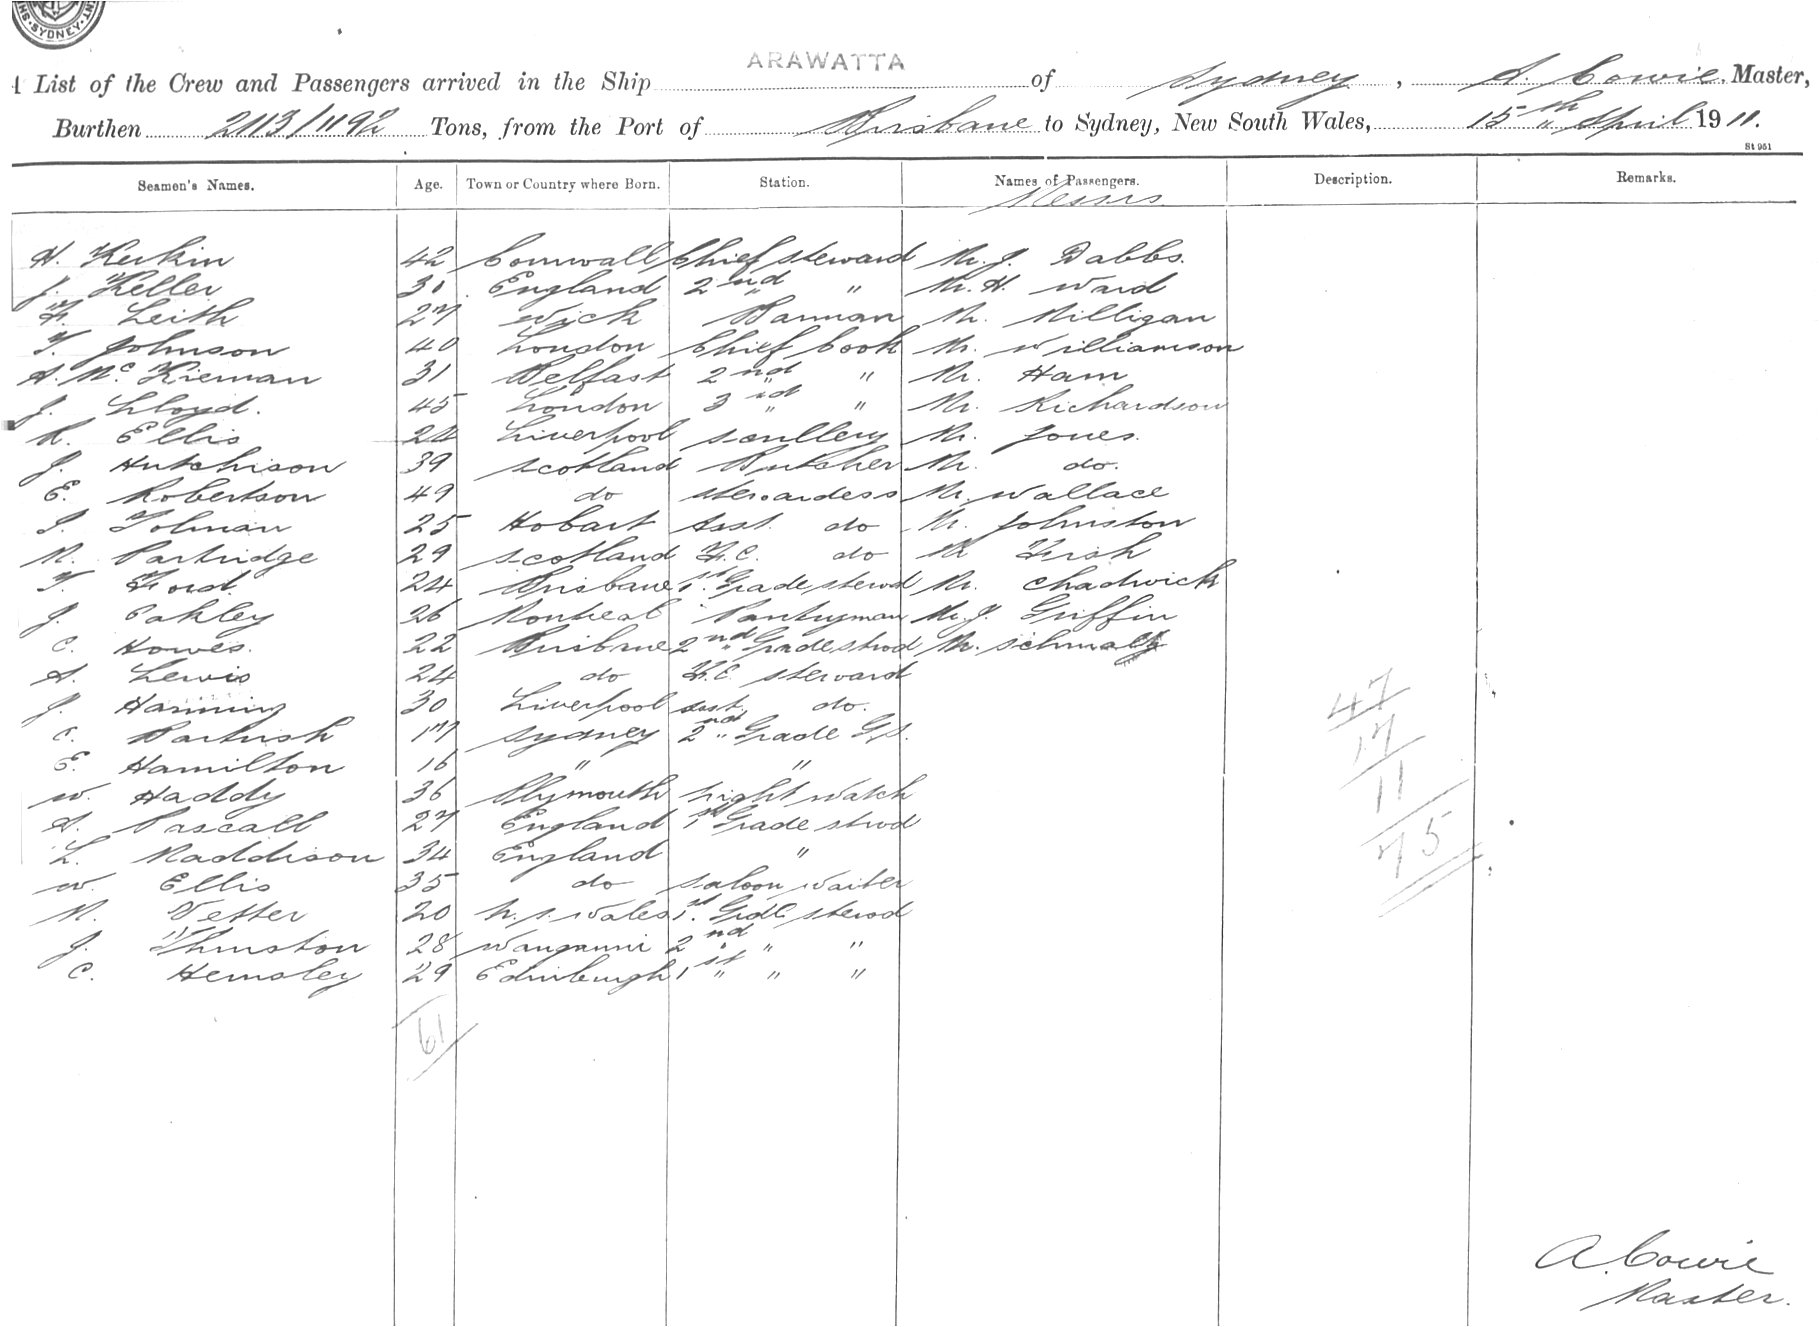 SYDNEY
ARAWATTA
A List of the Crew and Passengers arrived in the Ship of Sydney, A. Cowie. Master,
Burthen 2113/1192 Tons, from the Port of Brisbane to Sydney, New South Wales, 15th April 1911.
St 951
Seamen's Names. Age. Town or Country where Born. Station. Names of Passengers. Description. Remarks.
Messrs
H. Kerkin 42 Cornwall Chief steward Mr. J. Dabbs.
J. Keller 31 England 2nd " Mr. H. Ward
F. Leith 27 Wick Barman Mr. Milligan
T. Johnson 40 London Chief Cook Mr. Williamson
A. McKiernan 31 Belfast 2nd " Mr. Ham
J. Lloyd. 45 London 3rd " Mr. Richardson
R. Ellis 24 Liverpool scullery Mr. Jones.
J. Hutchison 39 Scotland Butcher Mr. do.
E. Robertson 49 do stewardess Mr. Wallace
I. Tolman 25 Hobart Asst. do Mr. Johnston
M. Partridge 29 Scotland F.C. do Mr Frish
T. Ford. 24 Brisbane 1st. Grade stewd Mr. Chadwick
J. Oakley 26 Montreal Pantryman Mr. J. Griffin
C. Howes. 22 Brisbane 2nd Grade stwd Mr. Schmalz
A. Lewis 24 do F.C. steward
J. Hanning 30 Liverpool Asst. do.
C. Partrish 17 Sydney 2nd Grade G.S.
E. Hamilton 16 " "
W. Haddy 36 Plymouth Night Watch
A. Pascall 27 England 1st Grade stwd
L. Maddison 34 England "
W. Ellis 35 do Saloon Waiter
M. Vetter 20 N. S. Wales 1st. Grde stewd
J. Thurston 28 Wanganui 2nd " "
C. Hemsley 29 Edinburgh 1st " "
61
47
17
11
75
A. Cowie
Master.